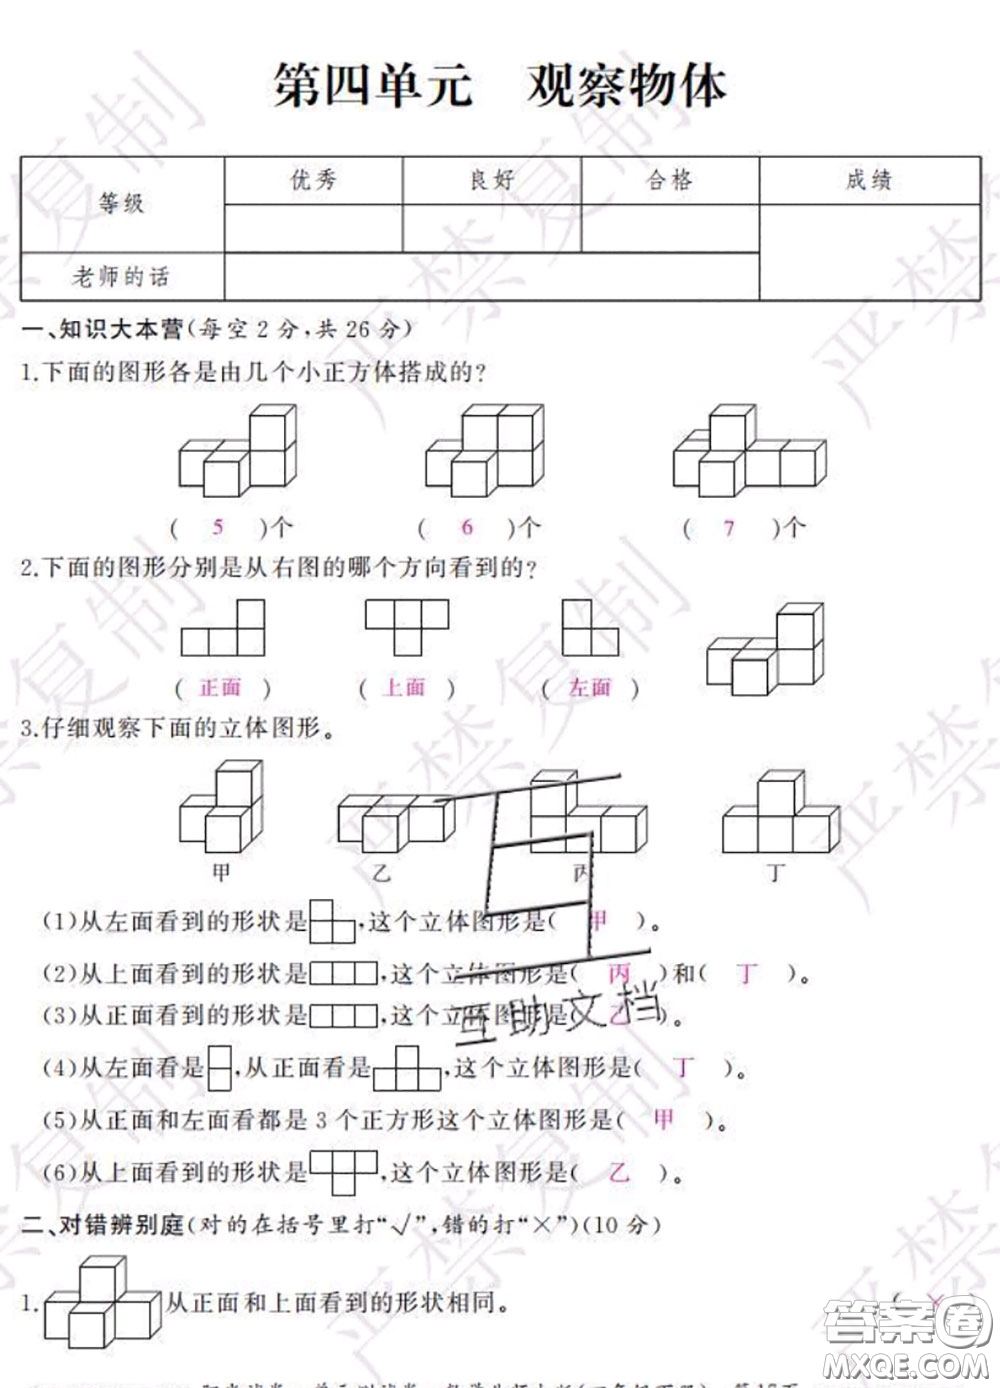 第四单元 观察物体
等级 优秀 良好 合格 成绩
老师的话
一、知识大本营(每空2分,共26分)
1.下面的图形各是由几个小正方体搭成的?
( 5 )个 ( 6 )个 ( 7 )个
2.下面的图形分别是从右图的哪个方向看到的?
( 正面 ) ( 上面 ) ( 左面 )
3.仔细观察下面的立体图形。
甲 乙 丙 丁
(1)从左面看到的形状是 ,这个立体图形是( 甲 )。
(2)从上面看到的形状是 ,这个立体图形是( 丙 )和( 丁 )。
(3)从正面看到的形状是 ,这个立体图形是( 乙 )。
(4)从左面看是 ,从正面看是 ,这个立体图形是( 丁 )。
(5)从正面和左面看都是3个正方形这个立体图形是( 甲 )。
(6)从上面看到的形状是 ,这个立体图形是( 乙 )。
二、对错辨别庭(对的在括号里打“√”,错的打“×”)(10分)
1. 从正面和上面看到的形状相同。 ( × )
严禁复制
互助文档
答案圈
MXQE.COM